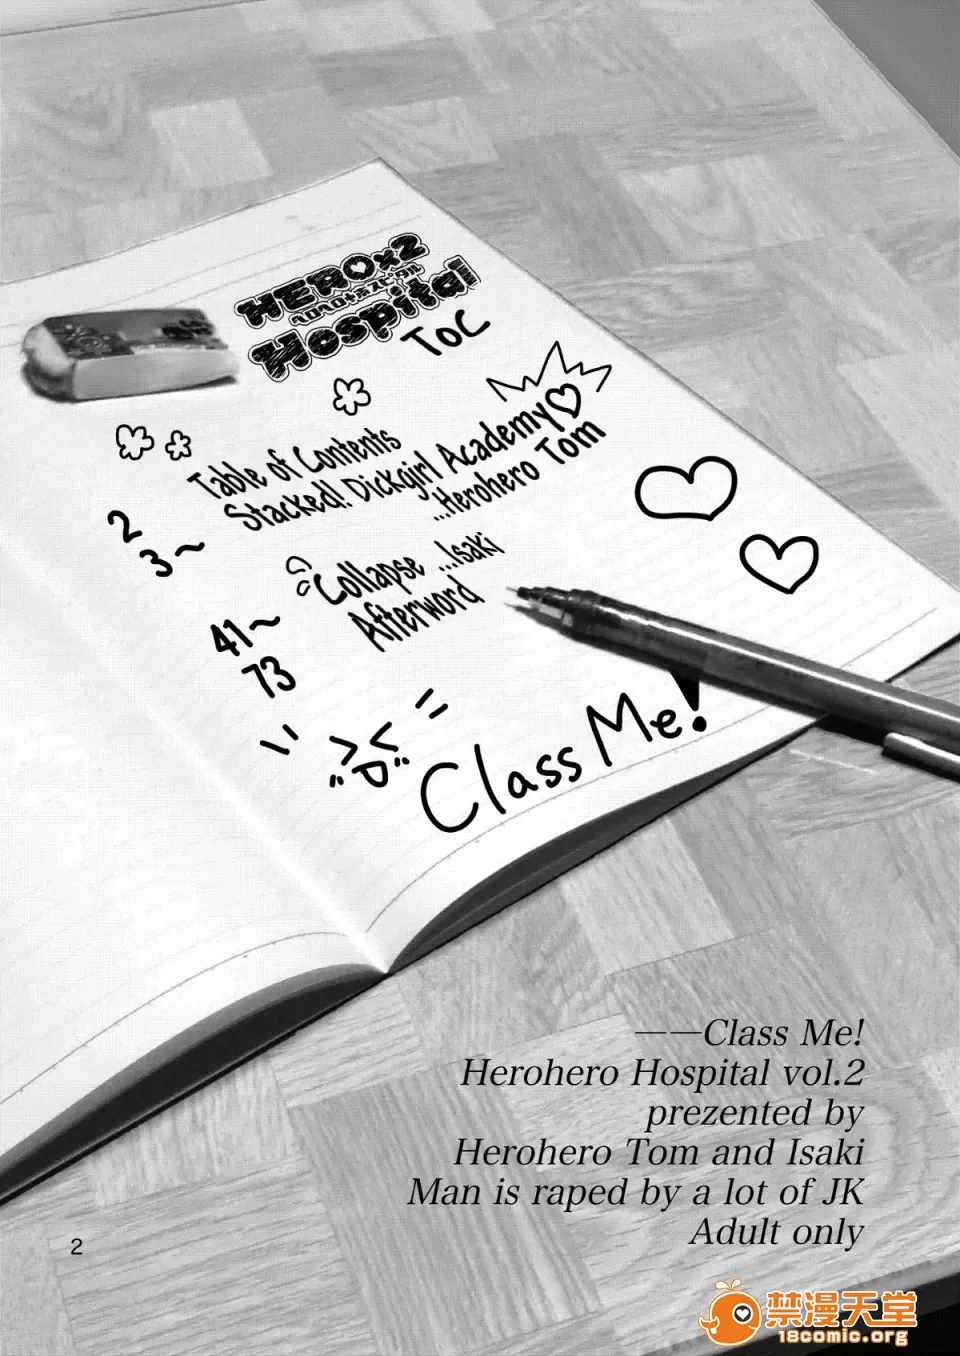 HERO×2
ヘロヘロ＋ホスピタル
Hospital
ToC
2 Table of Contents
3～ Stacked! Dickgirl Academy♡
...Herohero Tom
41～ Collapse ...Isaki
73 Afterword
Class Me!
——Class Me!
Herohero Hospital vol.2
prezented by
Herohero Tom and Isaki
Man is raped by a lot of JK
Adult only
2
禁漫天堂
18comic.org